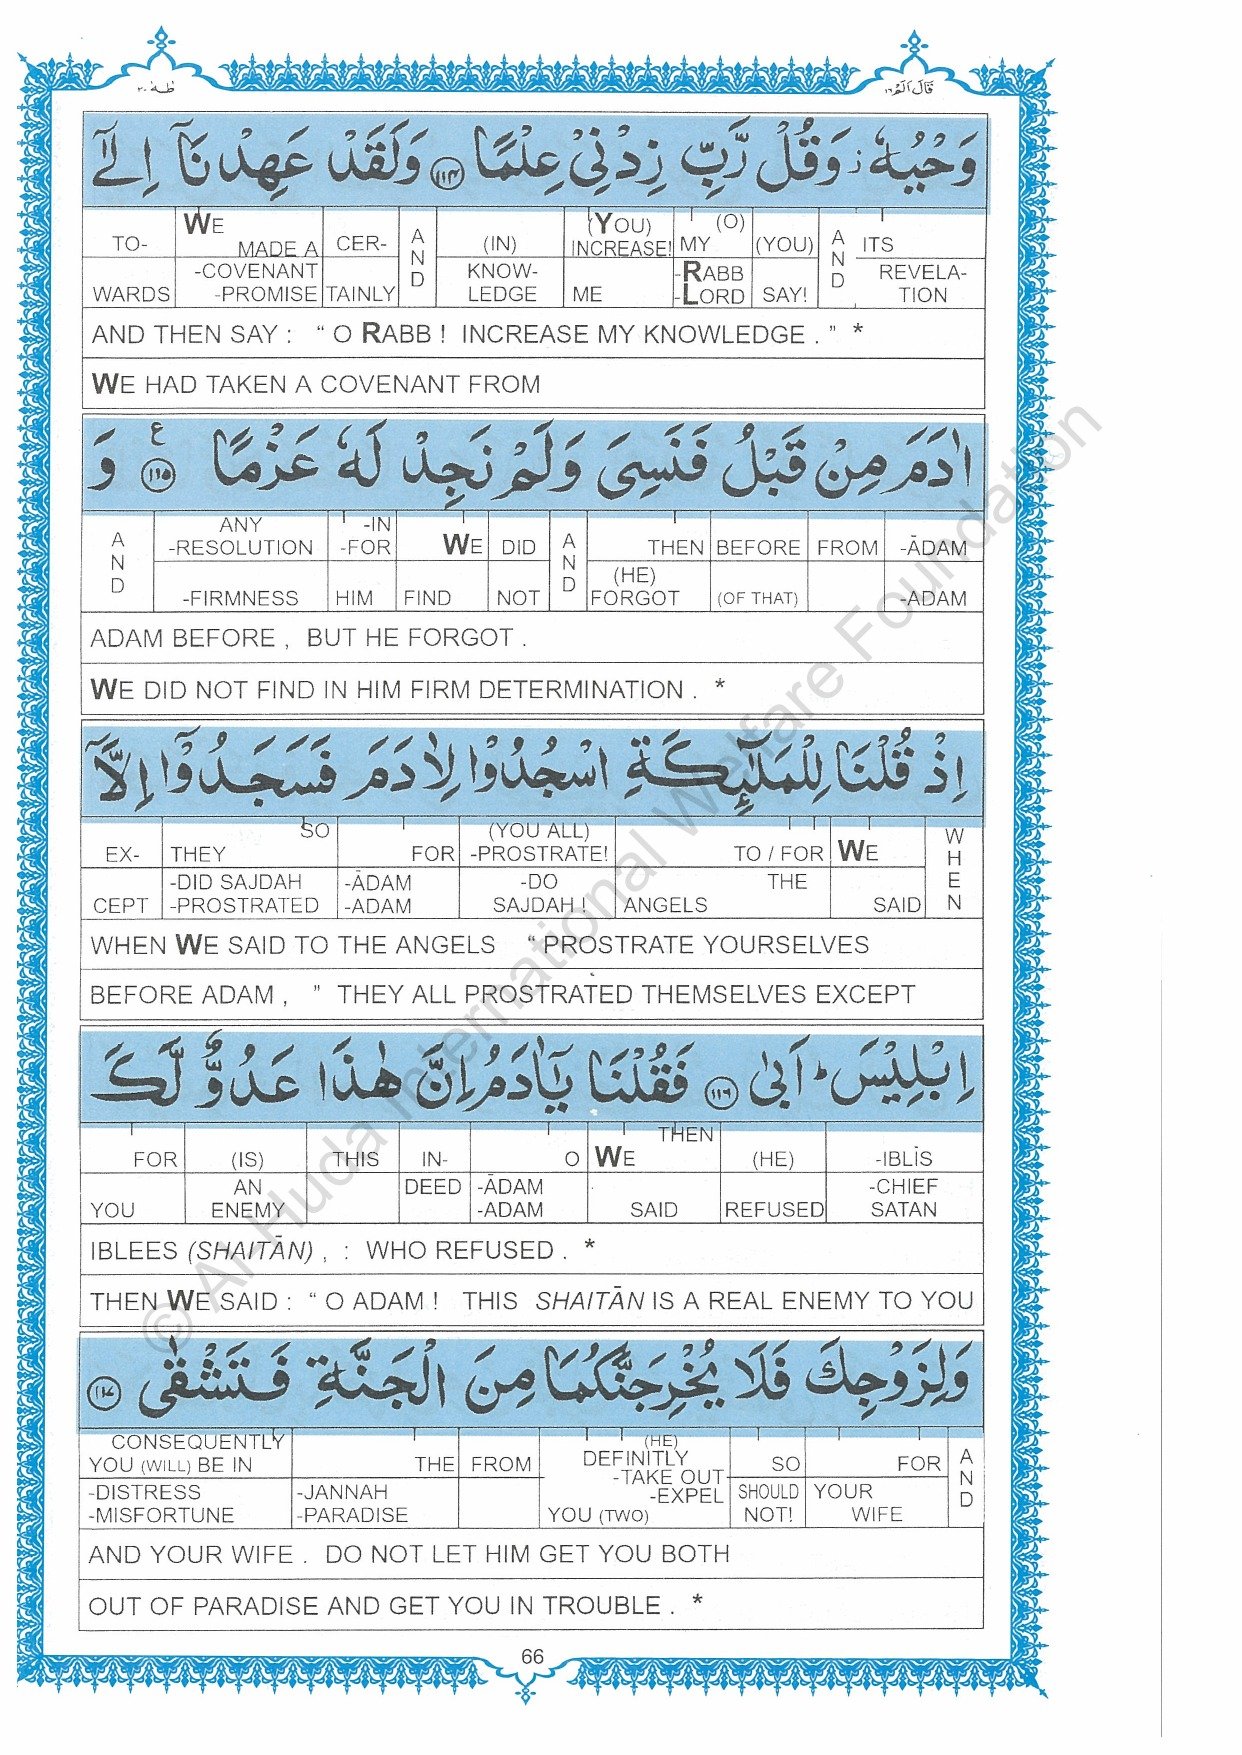 طٰهٰ ٢٠
قَالَ اَلَمْ ١٦
وَحْيُهٗ ز وَقُلْ رَّبِّ زِدْنِيْ عِلْمًا ﴿١١٤﴾ وَلَقَدْ عَهِدْنَآ اِلٰٓى
TO- WE MADE A CER- AND (IN) (YOU) INCREASE! MY (O) (YOU) AND ITS
WARDS -COVENANT -PROMISE TAINLY KNOW-LEDGE ME -RABB -LORD SAY! REVELA-TION
AND THEN SAY : “ O RABB ! INCREASE MY KNOWLEDGE . ” *
WE HAD TAKEN A COVENANT FROM
اٰدَمَ مِنْ قَبْلُ فَنَسِيَ وَلَمْ نَجِدْ لَهٗ عَزْمًا ﴿١١٥﴾ ع وَ
AND ANY -RESOLUTION -IN -FOR WE DID AND THEN BEFORE FROM -ĀDAM
-FIRMNESS HIM FIND NOT (HE) FORGOT (OF THAT) -ADAM
ADAM BEFORE , BUT HE FORGOT .
WE DID NOT FIND IN HIM FIRM DETERMINATION . *
اِذْ قُلْنَا لِلْمَلٰٓئِكَةِ اسْجُدُوْا لِاٰدَمَ فَسَجَدُوْٓا اِلَّآ
EX- THEY SO FOR (YOU ALL) -PROSTRATE! TO / FOR WE WHEN
CEPT -DID SAJDAH -PROSTRATED -ĀDAM -ADAM -DO SAJDAH ! ANGELS THE SAID
WHEN WE SAID TO THE ANGELS “ PROSTRATE YOURSELVES
BEFORE ADAM , ” THEY ALL PROSTRATED THEMSELVES EXCEPT
اِبْلِيْسَ ؕ اَبٰى ﴿١١٦﴾ فَقُلْنَا يٰٓاٰدَمُ اِنَّ هٰذَا عَدُوٌّ لَّكَ
FOR (IS) THIS IN- O WE THEN (HE) -IBLĪS
YOU AN ENEMY DEED -ĀDAM -ADAM SAID REFUSED -CHIEF SATAN
IBLEES (SHAITĀN) , : WHO REFUSED . *
THEN WE SAID : “ O ADAM ! THIS SHAITĀN IS A REAL ENEMY TO YOU
وَلِزَوْجِكَ فَلَا يُخْرِجَنَّكُمَا مِنَ الْجَنَّةِ فَتَشْقٰى ﴿١١٧﴾
CONSEQUENTLY YOU (WILL) BE IN THE FROM (HE) DEFINITLY -TAKE OUT SO FOR AND
-DISTRESS -MISFORTUNE -JANNAH -PARADISE -EXPEL YOU (TWO) SHOULD NOT! YOUR WIFE
AND YOUR WIFE . DO NOT LET HIM GET YOU BOTH
OUT OF PARADISE AND GET YOU IN TROUBLE . *
66
© Al-Huda International Welfare Foundation